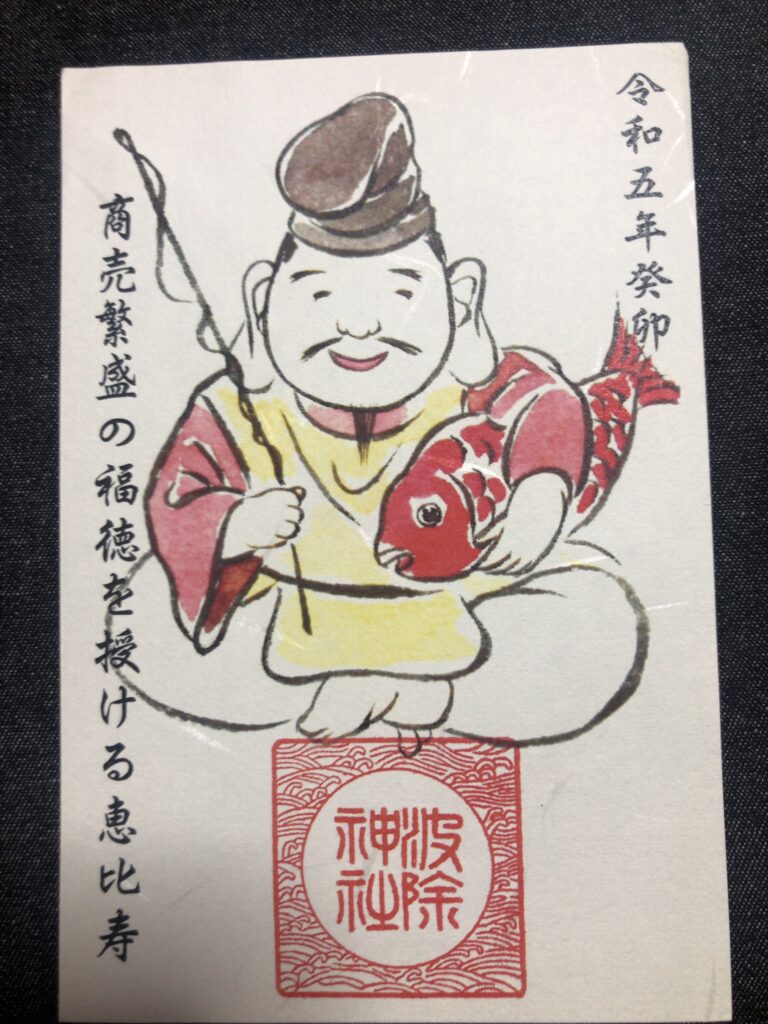 令和五年癸卯
商売繁盛の福徳を授ける恵比寿
波除
神社